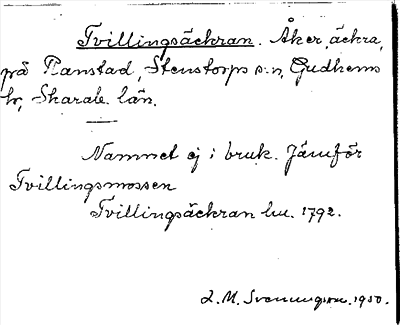 Tvillingsäckran. Åker, äckra,
på Ranstad, Stenstorps sn, Gudhems
hd, Skarab. län.
Namnet ej i bruk. Jämför
Tvillingsmossen
Tvillingsäckran hu. 1792.
L. M. Svenungsson. 1930.